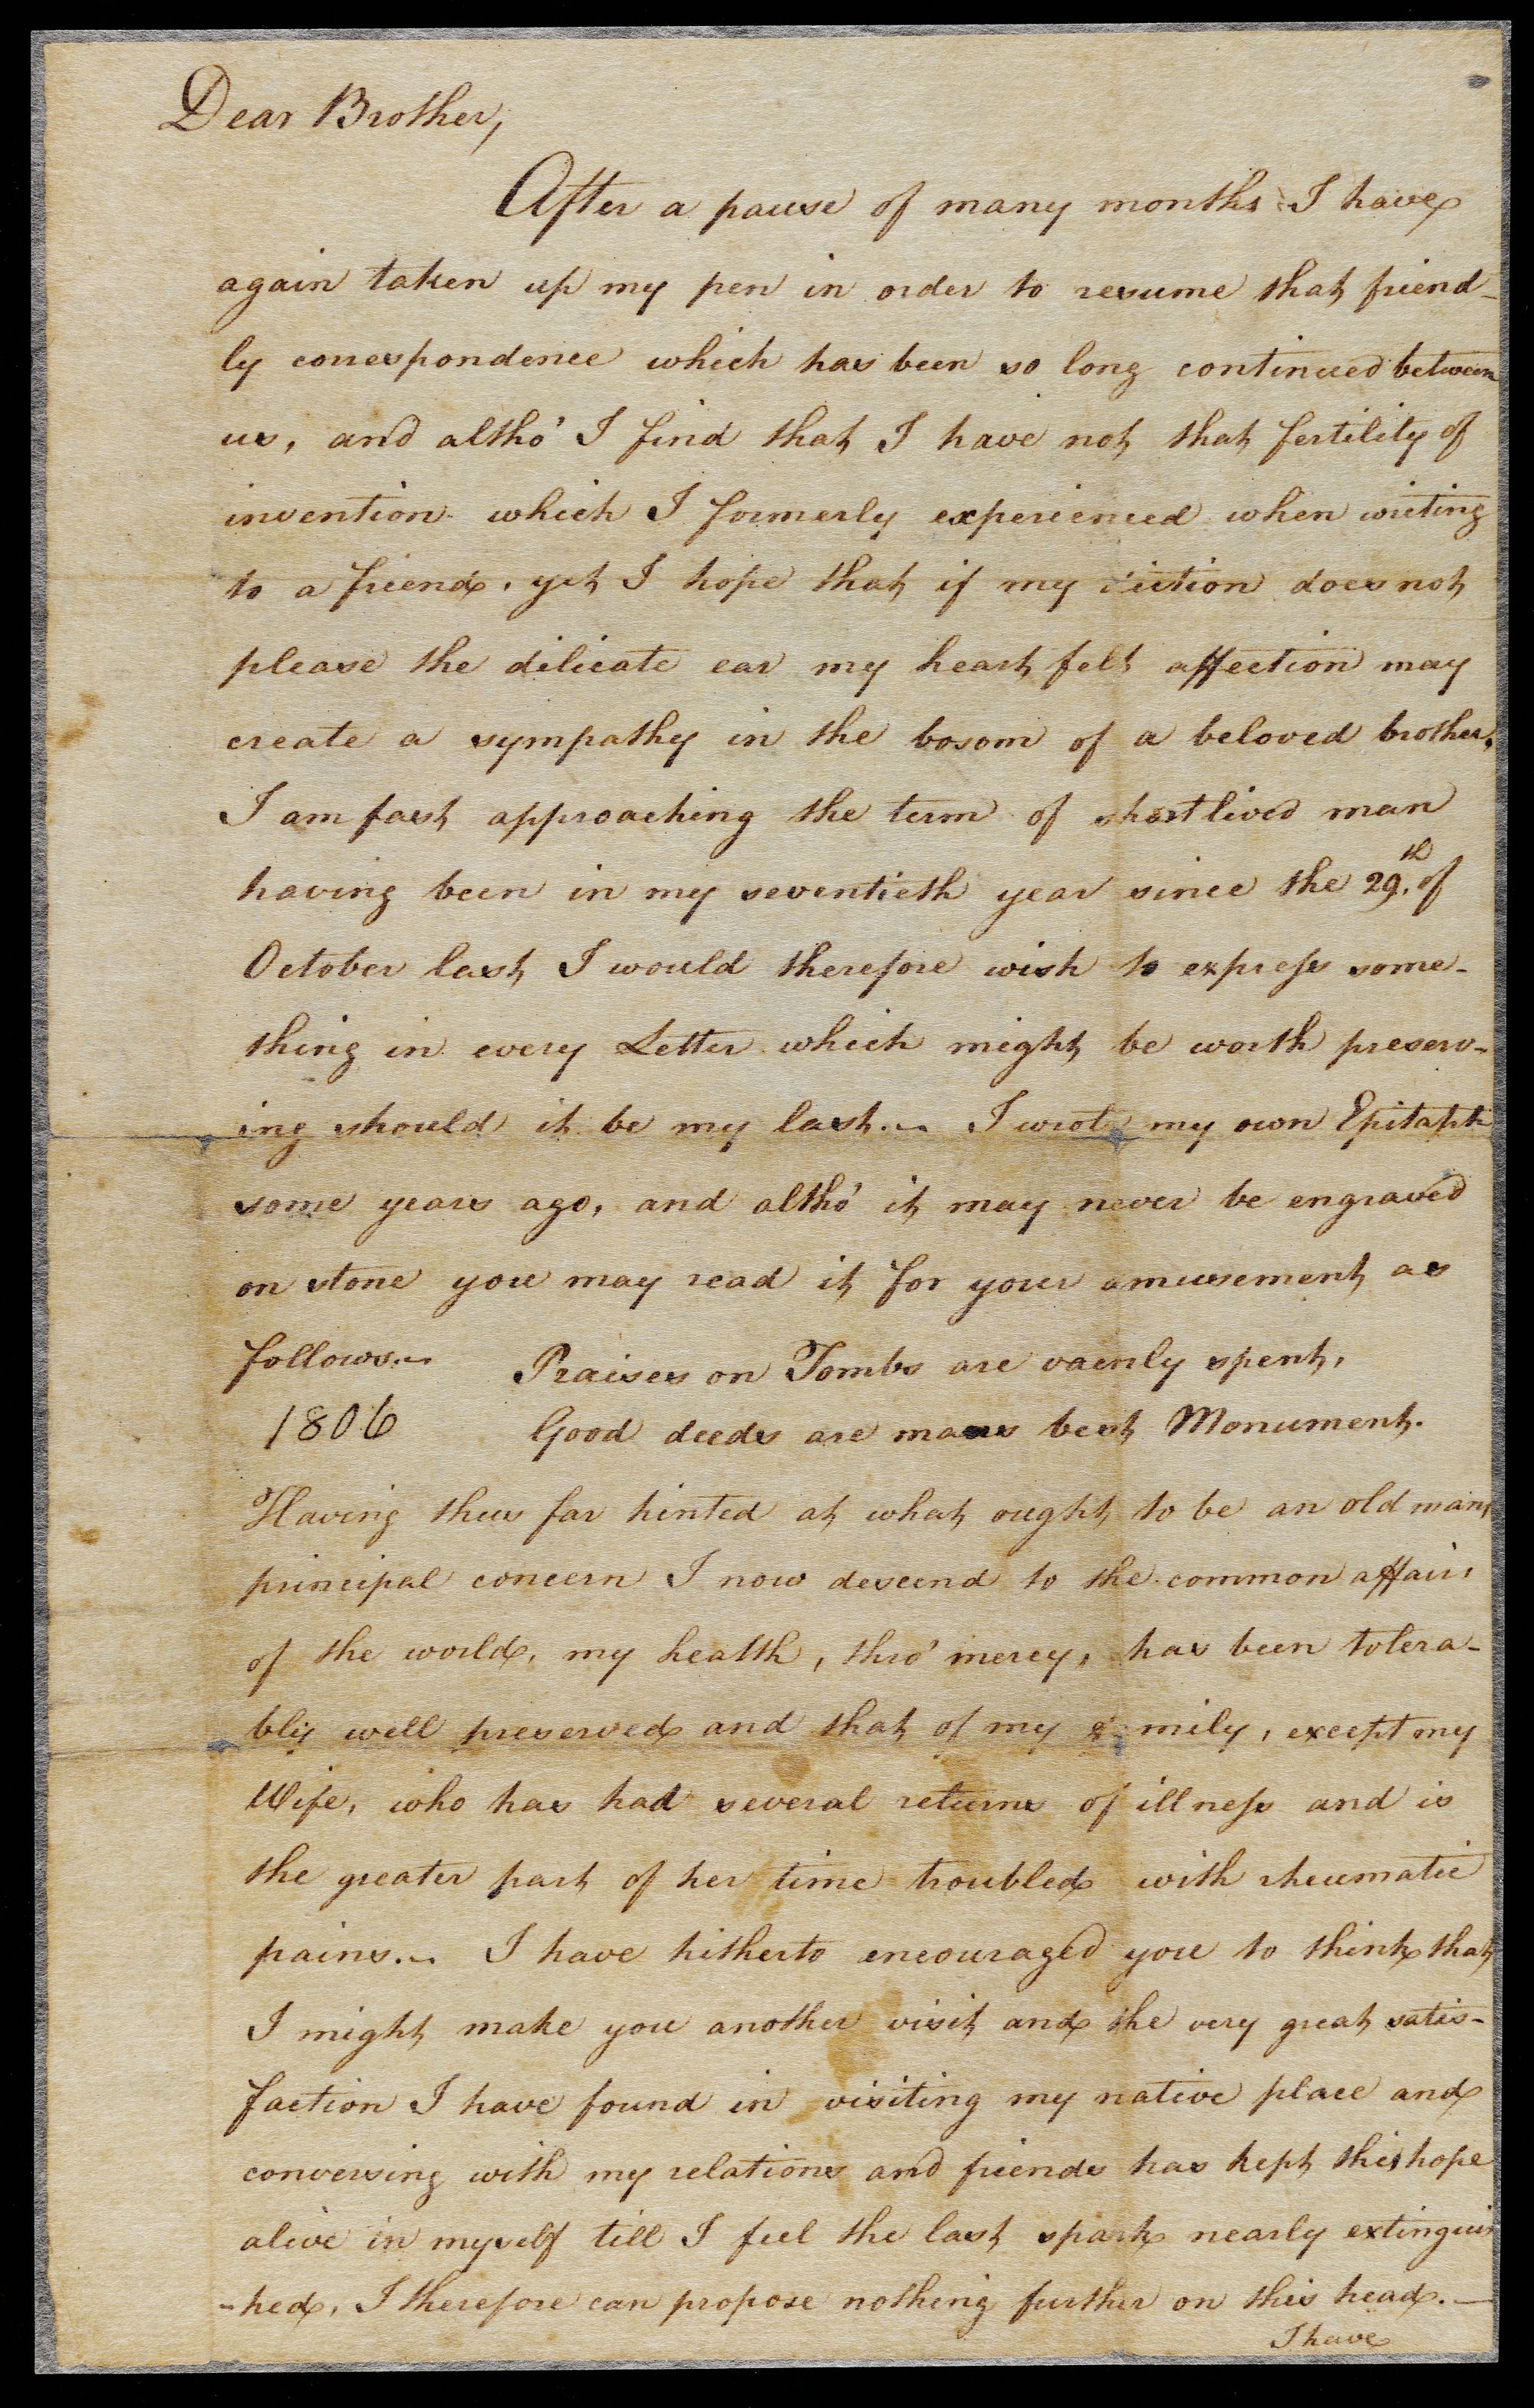 Dear Brother,
After a pause of many months I have
again taken up my pen in order to resume that friend-
ly correspondence which has been so long continued between
us, and altho' I find that I have not that fertility of
invention which I formerly experienced when writing
to a friend, yet I hope that if my diction does not
please the dilicate ear my heart felt affection may
create a sympathy in the bosom of a beloved brother,
I am fast approaching the term of short lived man
having been in my seventieth year since the 29.th of
October last, I would therefore wish to express some-
thing in every Letter which might be worth preserv-
ing should it be my last.~ I wrote my own Epitaph
some years ago, and altho' it may never be engraved
on stone you may read it for your amusement as
follows.~ Praises on Tombs are vainly spent,
1806 Good deeds are mans best Monument.
Having thus far hinted at what ought to be an old mans
principal concern I now descend to the common affairs
of the world, my health, thro' mercy, has been tolera-
bly well preserved and that of my mily, except my
Wife, who has had several returns of illness and is
the greater part of her time troubled with rheumatic
pains.~ I have hitherto encouraged you to think that
I might make you another visit and the very great satis-
faction I have found in visiting my native place and
conversing with my relations and friends has kept this hope
alive in myself till I feel the last spark nearly extinguis
-hed, I therefore can propose nothing further on this head.—
I have